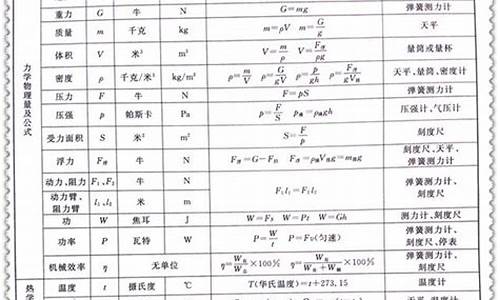 重力 G 牛 N G=mg 弹簧测力计
质量 m 千克 kg m=ρV m=G/g 天平
体积 V 米³ m³ V=m/ρ V=F浮/ρg 量筒或量杯
密度 ρ 千克/米³ kg/m³ ρ=m/V ρ=G/gV ρ=p/gh ρ=F浮/gV排 天平、量筒、密度计
压力 F 牛 N F=pS 弹簧测力计
压强 p 帕斯卡 Pa p=F/S p液=ρ液gh 压强计、气压计
受力面积 S 米² m² S=F/p 刻度尺
浮力 F浮 牛 N F浮=G-F示 F浮=ρ液V排g=m排g 刻度尺、天平、弹簧测力计
动力、阻力 F₁、F₂ 牛 N F₁l₁=F₂l₂ 弹簧测力计、刻度尺
动力臂、阻力臂 l₁、l₂ 米 m
功 W 焦耳 J W=Fs W=Pt W=Gh 测力计、刻度尺
功率 P 瓦特 W P=W/t P=Fv(匀速) 弹簧测力计、刻度尺、停表
机械效率 η 无单位 η=W有/W总×100% η=W有/(W有+W额)×100% 弹簧测力计、刻度尺
温度 t 摄氏度 ℃ T(华氏温度)=t+273.15 温度计
力学物理量及公式
热学